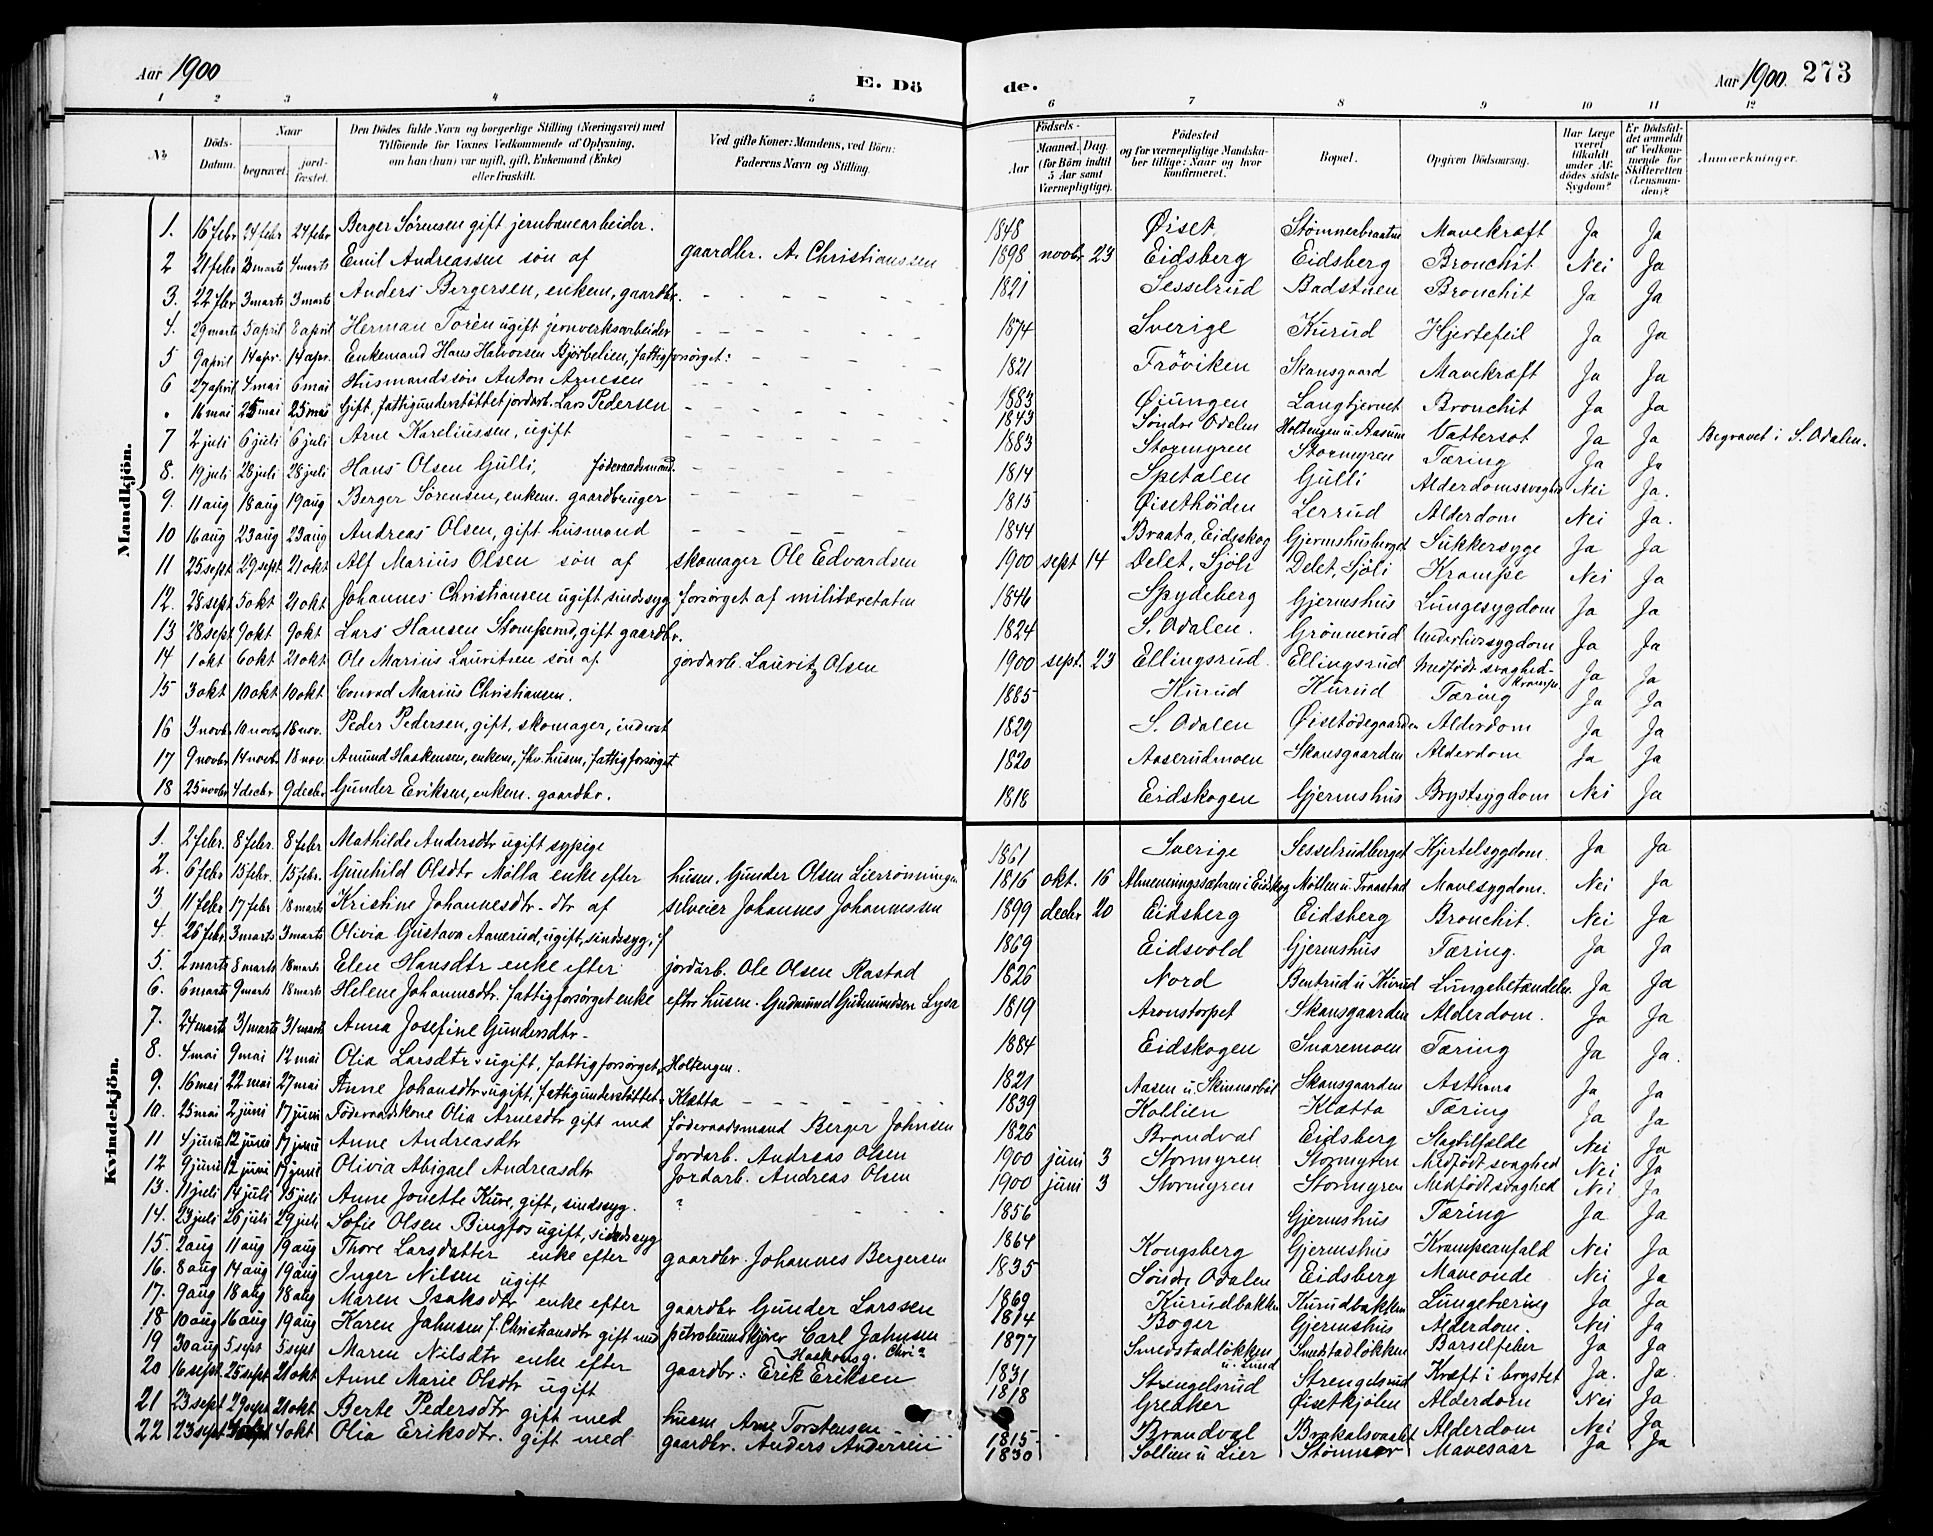 Aar 1900
E. Dö
de.
Aar 1900. 273
1 2 3 4 5 6 7 8 9 10 11 12
No. Döds-Datum. Naar begravet. jord-fæstet. Den Dödes fulde Navn og borgerlige Stilling (Næringsvei) med Tilföiende for Voxnes Vedkommende af Oplysning, om han (hun) var ugift, gift, Enkemand (Enke) eller fraskilt. Ved gifte Koner: Mandens, ved Börn: Faderens Navn og Stilling. Födsels- Aar Maaned. Dag. (for Börn indtil 5 Aar samt Værnepligtige). Födested og for værnepligtige Mandskaber tillige: Naar og hvor konfirmeret. Bopæl. Opgiven Dödsaarsag. Har Læge været tilkaldt under Afdödes sidste Sygdom? Er Dödsfaldet anmeldt af Vedkommende for Skifteretten (Lensmanden)? Anmærkninger.
Mandkjön.
1. 16 febr 24 febr 24 febr Berger Sörensen gift jernbanearbeider. 1848 Öiset Stömnerbraaten Mavekræft Ja Ja
2 21 febr 3 marts 4 marts Emil Andreassen sön af gaardbr. A. Christianssen 1898 novbr 23 Eidsberg Eidsberg Bronchit Nei Ja
3. 22 febr 3 marts 3 marts Anders Bergersen, enkem, gaardbr. 1821 Sesselrud Badstuen Bronchit Ja Ja
4. 29 marts 5 april 8 april Herman Torèn ugift jernverksarbeider 1874 Sverige Kurud Hjertefeil Ja Ja
5 9 april 14 apr. 14 apr. Enkemand Hans Halvorsen Björbelien, fattigforsörget: 1821 Fröviken Skansgaard Mavekræft Ja Ja
6 27 april 4 mai 6 mai Husmandssön Anton Arnesen 1883 Öiungen Langtjernet Bronchit Ja Ja
" 16 mai 25 mai 25 mai Gift, fattigunderstöttet jordarb. Lars Pedersen 1843 Söndre Odalen Holtengen u. Aasum Vattersot Ja Ja Begravet i S. Odalen.
7 2 juli 6 juli 6 juli Arne Kareliussen, ugift 1883 Stormyren Stormyren Tæring Ja Ja
8. 19 juli 28 juli 28 juli Hans Olsen Gulli, föderaadsmand. 1814 Spetalen Gulli Alderdomssvaghed Nei Ja.
9. 11 aug 18 aug 19 aug Berger Sörensen, enkem. gaardbruger 1815 Öisethöiden Lerrud Alderdom Nei Ja.
10 16 aug 23 aug 23 aug Andreas Olsen, gift husmand 1844 Braata, Eidskog Gjermshusberget Sukkersyge Ja Ja
11 25 sept 29 sept 21 okt Alf Marius Olsen sön af skomager Ole Edvardsen 1900 sept 14 Delet, Sjöli Delet, Sjöli Krampe Nei Ja
12. 28 sept 5 okt 21 okt Johannes Christiansen ugift, sindssyg forsörget af militæretaten 1846 Spydeberg Gjermshus Lungesygdom Ja Ja
13 28 sept 9 okt 9 okt Lars Hansen Stomperud, gift gaardbr. 1824 S. Odalen. Grönnerud Underlivssygdom Ja Ja
14 1 okt 6 okt 21 okt Ole Marius Lauritsen sön af jordarb. Lauritz Olsen 1900 sept. 23 Ellingsrud. Ellingsrud Medfödt svaghed-krampe Ja Ja
15 3 okt 10 okt 10 okt Conrad Marius Christiansen. 1885 Kurud Kurud Tæring Ja Ja
16 3 novbr 10 novbr 18 nov. Peder Pedersen, gift, skomager, inderst 1829 S. Odalen Öisetödegaarden Alderdom Ja Ja
17 9 novbr 14 novbr 18 nov. Amund Haakensen, enkem, fhv. husm, fattigforsörget 1820 Aaserudmoen Skansgaarden Alderdom Ja Ja
18 25 novbr 4 decbr 9 decbr Gunder Eriksen, enkem. gaardbr. 1818 Eidskogen Gjermshus Brystsygdom Nei Ja
Kvindekjön.
1. 2 febr. 8 febr. 8 febr Mathilde Andersdtr ugift sypige 1861 Sverige Sesselrudberget Kjertelsygdom. Ja Ja
2. 6 febr 15 febr. 15 febr. Gunhild Olsdtr Mölla enke efter husm. Gunder Olsen Lierrönningen 1816 okt. 16 Almenningssætren i Eidskog Möllen u. Traastad Mavesygdom. Nei Ja
3 11 febr 17 febr 18 marts Kristine Johannesdtr. dtr af selveier Johannes Johannessen 1899 decbr 20 Eidsberg Eidsberg Bronchit. Nei Ja
4. 26 febr 3 marts 3 marts Olivia Gustava Aanerud, ugift, sindssyg, f 1869 Eidsvold Gjermshus Tæring. Ja Ja
5. 2 marts 8 marts 18 marts Elen Hansdtr enke efter jordarb. Ole Olsen Rastad 1826 Nord Bentrud u Kurud Lungebetændelse Ja Ja
6. 6 marts 9 marts 18 marts Helene Johannesdtr. fattigforsörget enke eftr husm. Gudmund Gudmundsen Lysa 1819 Aronstorpet Skansgaarden Alderdom. Ja Ja
7. 24 marts 31 marts 31 marts Anna Josefine Gundersdtr. 1884 Eidskogen Snaremoen Tæring Ja Ja.
8. 4 mai 9 mai 12 mai Olia Larsdtr. ugift, fattigforsörget, Holtengen. 1821 Aasen u. Skinnarböl Skansgaarden Asthma Ja Ja
9. 16 mai 22 mai 27 mai Anne Johansdtr. ugift, fattigunderstöttet. Klætta 1839 Kollien Klætta Tæring Ja Ja
10. 25 mai 2 juni 17 juni Föderaadskone Olia Arnesdtr gift med föderaadsmand Berger Johnsen 1826 Brandval Eidsberg Slagtilfælde Nei Ja
11 4 juni 12 juni 17 juni Anne Andreasdtr Jordarb. Andreas Olsen 1900 juni 3 Stormyren Stormyren Medfödt svaghed Nei Ja
12 9 juni 12 juni 17 juni Olivia Abigael Andreasdtr Jordarb. Andreas Olsen 1900 juni 3 Stormyren Stormyren Medfödt svaghed Nei Ja
13. 11 juli 14 juli 15 juli Anne Jonette Kure, gift, sindssyg. ? 1856 Gjermshus Tæring Ja Ja
14. 23 juli 26 juli 29 juli Sofie Olsen Bingfos ugift, sindssyg 1864 Kongsberg Gjermshus Krampeanfald Nei Ja
15. 2 aug 11 aug 19 aug Thore Larsdatter enke efter gaardbr. Johannes Bergersen 1835 Söndre Odalen Eidsberg Maveonde Nei Ja
16. 8 aug 14 aug 19 aug Inger Nilsen ugift 1869 Kurudbakken Kurudbakken Lungetæring Ja Ja
17. 9 aug 18 aug 18 aug Maren Isaksdtr enke efter gaardbr Gunder Larssen 1814 Boger Gjermshus Alderdom. Nei Ja
18 10 aug 16 aug 19 aug Karen Jahnsen f. Christiansdtr gift med petroleumskjörer Carl Jahnsen 1877 Smedstadlökken u. Lund Smedstadlökken Barselfeber Ja Ja
19 30 aug 5 sept 5 sept Maren Nilsdtr enke efter gaardbr: Erik Eriksen 1831 Strengelsrud Strengelsrud Kræft i brystet Ja. Ja.
20 16 sept 25 sept 21 okt Anne Marie Olsdtr ugift 1818 Gredker Öisetkjölen Alderdom Nei Ja
21 23 sept 29 sept 21 okt Berte Pedersdtr gift med husm Arne Torstensen 1815 Brandval Alderdom Nei Ja
22 23 sept 4 okt Olia Eriksdtr. gift med gaardbr. Anders Andersen 1830 Sollien u Lier Stömner Mavesaar Ja Ja